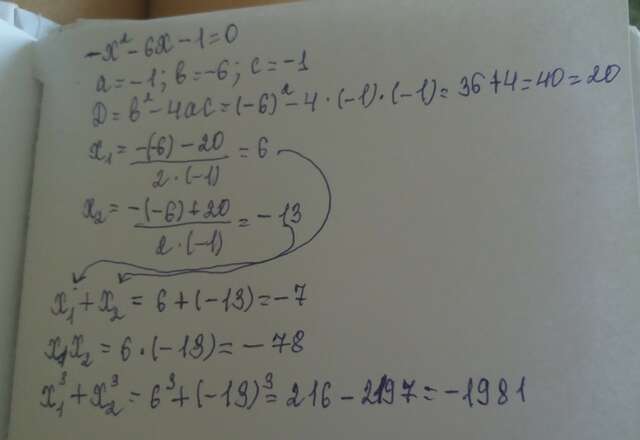 -x² - 6x - 1 = 0
a = -1; b = -6; c = -1
D = b² - 4ac = (-6)² - 4 · (-1) · (-1) = 36 + 4 = 40 = 20
x₁ = (-(-6) - 20) / (2 · (-1)) = 6
x₂ = (-(-6) + 20) / (2 · (-1)) = -13
x₁ + x₂ = 6 + (-13) = -7
x₁x₂ = 6 · (-13) = -78
x₁³ + x₂³ = 6³ + (-13)³ = 216 - 2197 = -1981